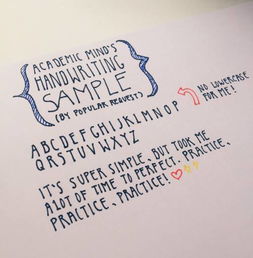 ACADEMIC MIND'S
HANDWRITING
SAMPLE
(BY POPULAR REQUEST)
ABCDEFGHIJKLMNOP
QRSTUVWXYZ
NO LOWERCASE
FOR ME!
IT'S SUPER SIMPLE, BUT TOOK ME
A LOT OF TIME TO PERFECT. PRACTICE,
PRACTICE, PRACTICE!